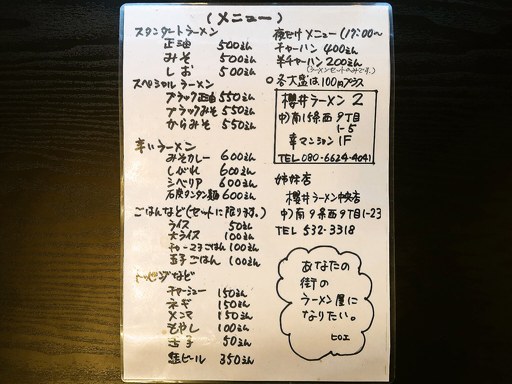 (メニュー)
スタンダートラーメン
正油 500えん
みそ 500えん
しお 500えん
スペシャル ラーメン
ブラック正油 550えん
ブラックみそ 550えん
からみそ 550えん
辛いラーメン
みそカレー 600えん
しびれ 600えん
シベリア 600えん
石炭タンタン麺 600えん
ごはんなど(セットに限ります。)
ライス 50えん
大ライス 100えん
チャーマヨごはん 100えん
玉子ごはん 100えん
トッピングなど
チャーシュー 150えん
ネギ 150えん
メンマ 150えん
もやし 100えん
玉子 50えん
缶ビール 350えん
夜だけメニュー(17:00〜
チャーハン 400えん
半チャーハン 200えん
(ラーメンセットのみです。)
○ 各大盛は100円プラス
櫻井ラーメン 2
中)南15条西9丁目
1-5
幸マンション1F
TEL 080-6624-4041
姉妹店
櫻井ラーメン中央店
中)南9条西9丁目1-23
TEL 532-3318
あなたの
街の
ラーメン屋に
なりたい。
ヒロエ